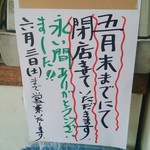 五月末までにて
閉店させていただきます。
永い間ありがとうござい
ました!!
六月三日(土)まで営業いたします。